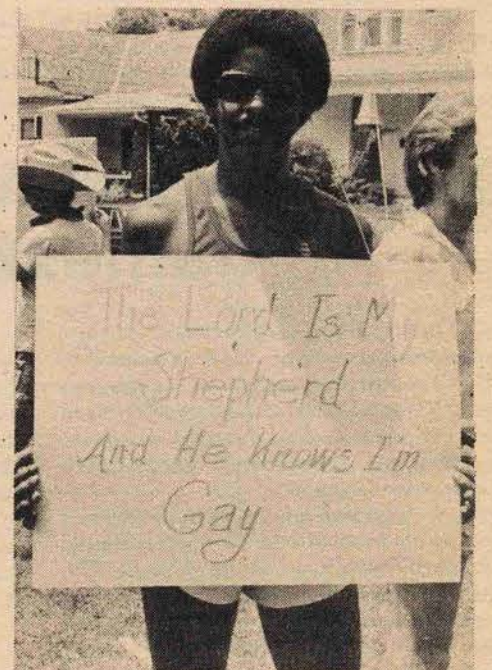 The Lord Is My
Shepherd
And He Knows I'm
Gay